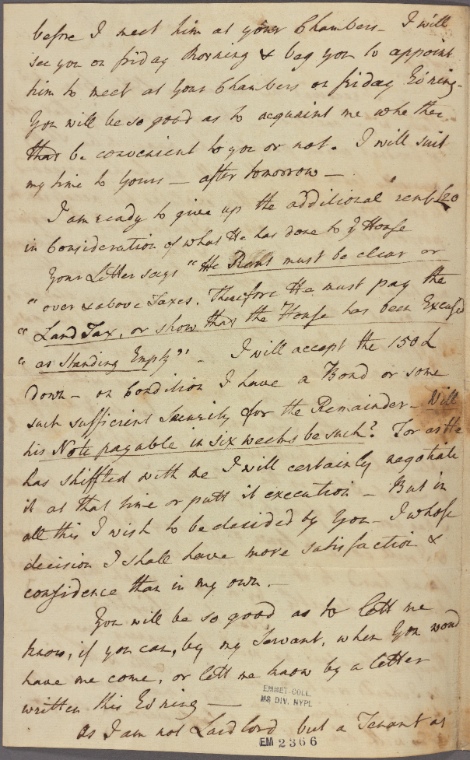 before I meet him at your Chambers - I will
see you on friday Morning & beg you to appoint
him to meet at your Chambers on friday Ev'ning -
You will be so good as to acquaint me whether
that be convenient to you or not. I will suit
my time to yours - after tomorrow -
I am ready to give up the additional rent £20
in Consideration of what He has done to ye House
Your Letter says "the Rent must be clear or
"over & above Taxes. Therefore He must pay the
"Land Tax, or show that the House has been Excused
"as Standing Empty" - I will accept the 150£
down - on Condition I have a Bond or some
such sufficient Security for the Remainder - Will
his Note payable in six weeks be such? For as He
has shiffted with me I will certainly negotiate
it at that time or putt it execution - But in
all this I wish to be decided by You - I whose
decision I shall have more satisfaction &
confidence than in my own. -
You will be so good as to lett me
know, if you can, by my Servant, when You woud
have me come, or lett me know by a letter
written this Ev'ning -
EMMET COLL.
MS DIV. NYPL
as I am not Landlord but a Tenant as
EM 2366